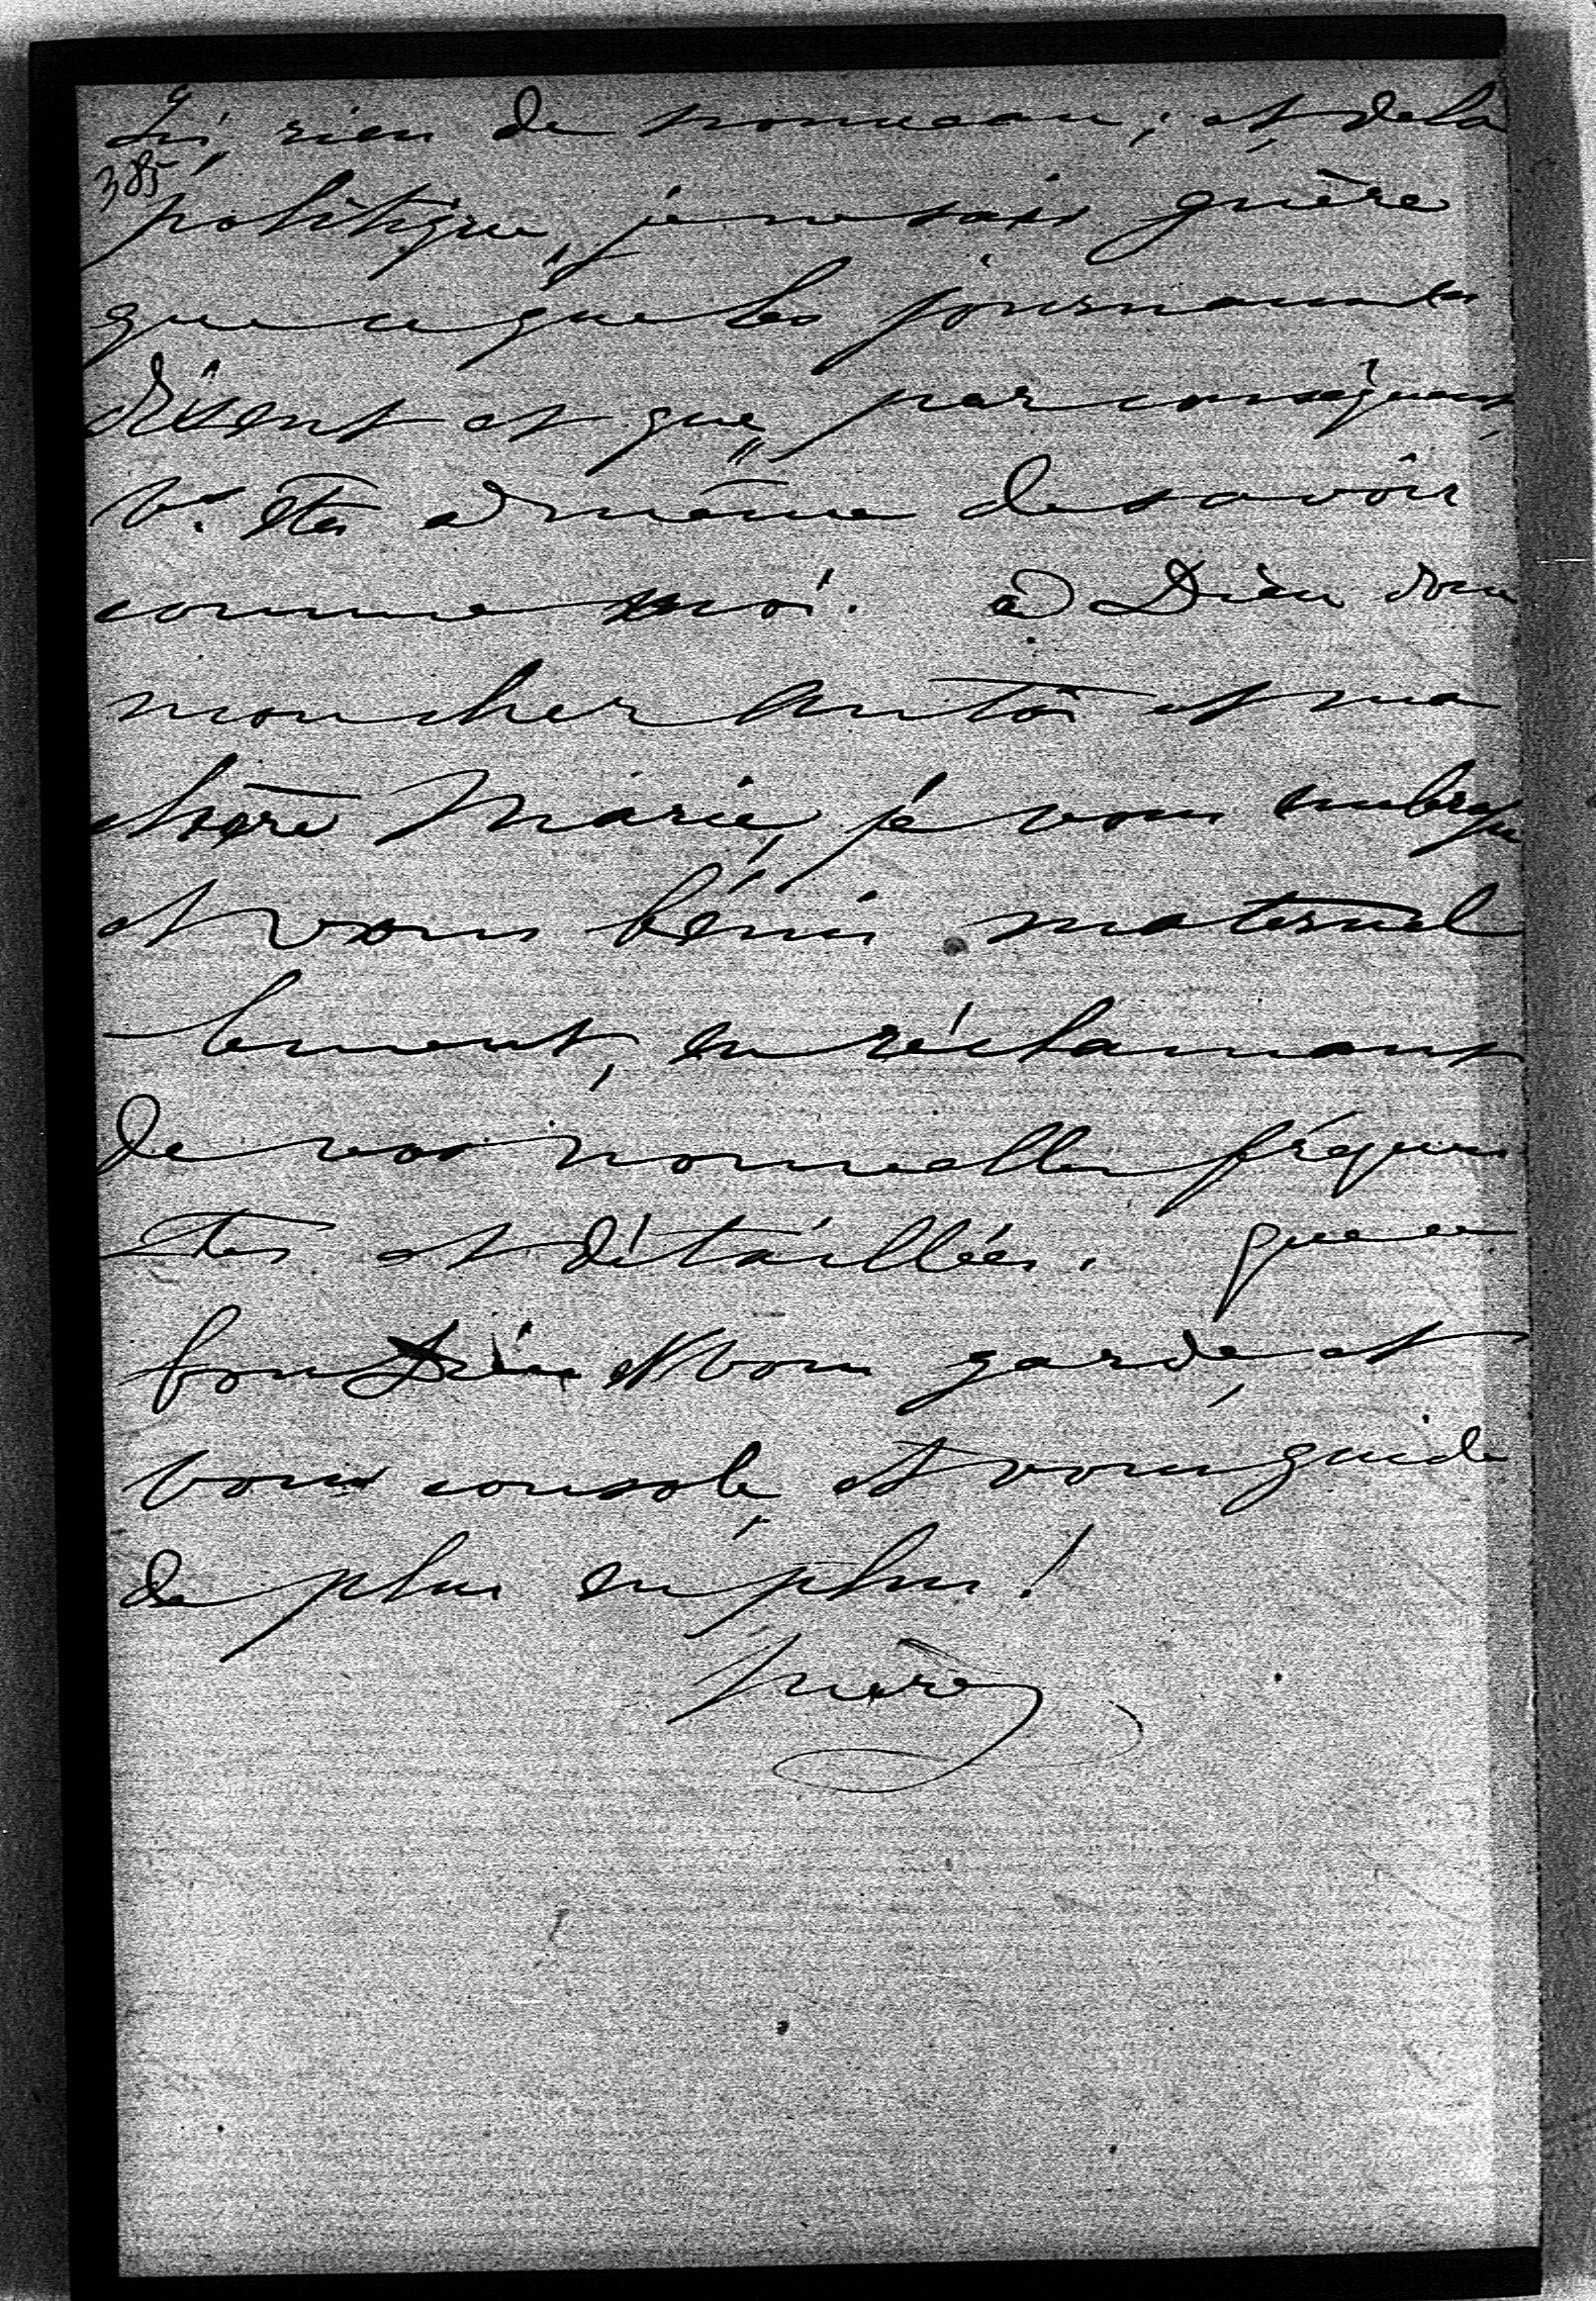 rien de nouveau; et de la
385
politique, je ne sais guère
que ce que les journaux
disent et que, par conséquent,
Vs. êtes à même de savoir
comme moi. à Dieu donc
mon cher Anton et ma
chère Marie, je vous embrasse
et vous bénis maternel
lement, en réclamant
de vos nouvelles fréquen
tes et détaillées. que ce
bon Dieu vous garde, et
vous console, et vous guide
de plus en plus!
mère